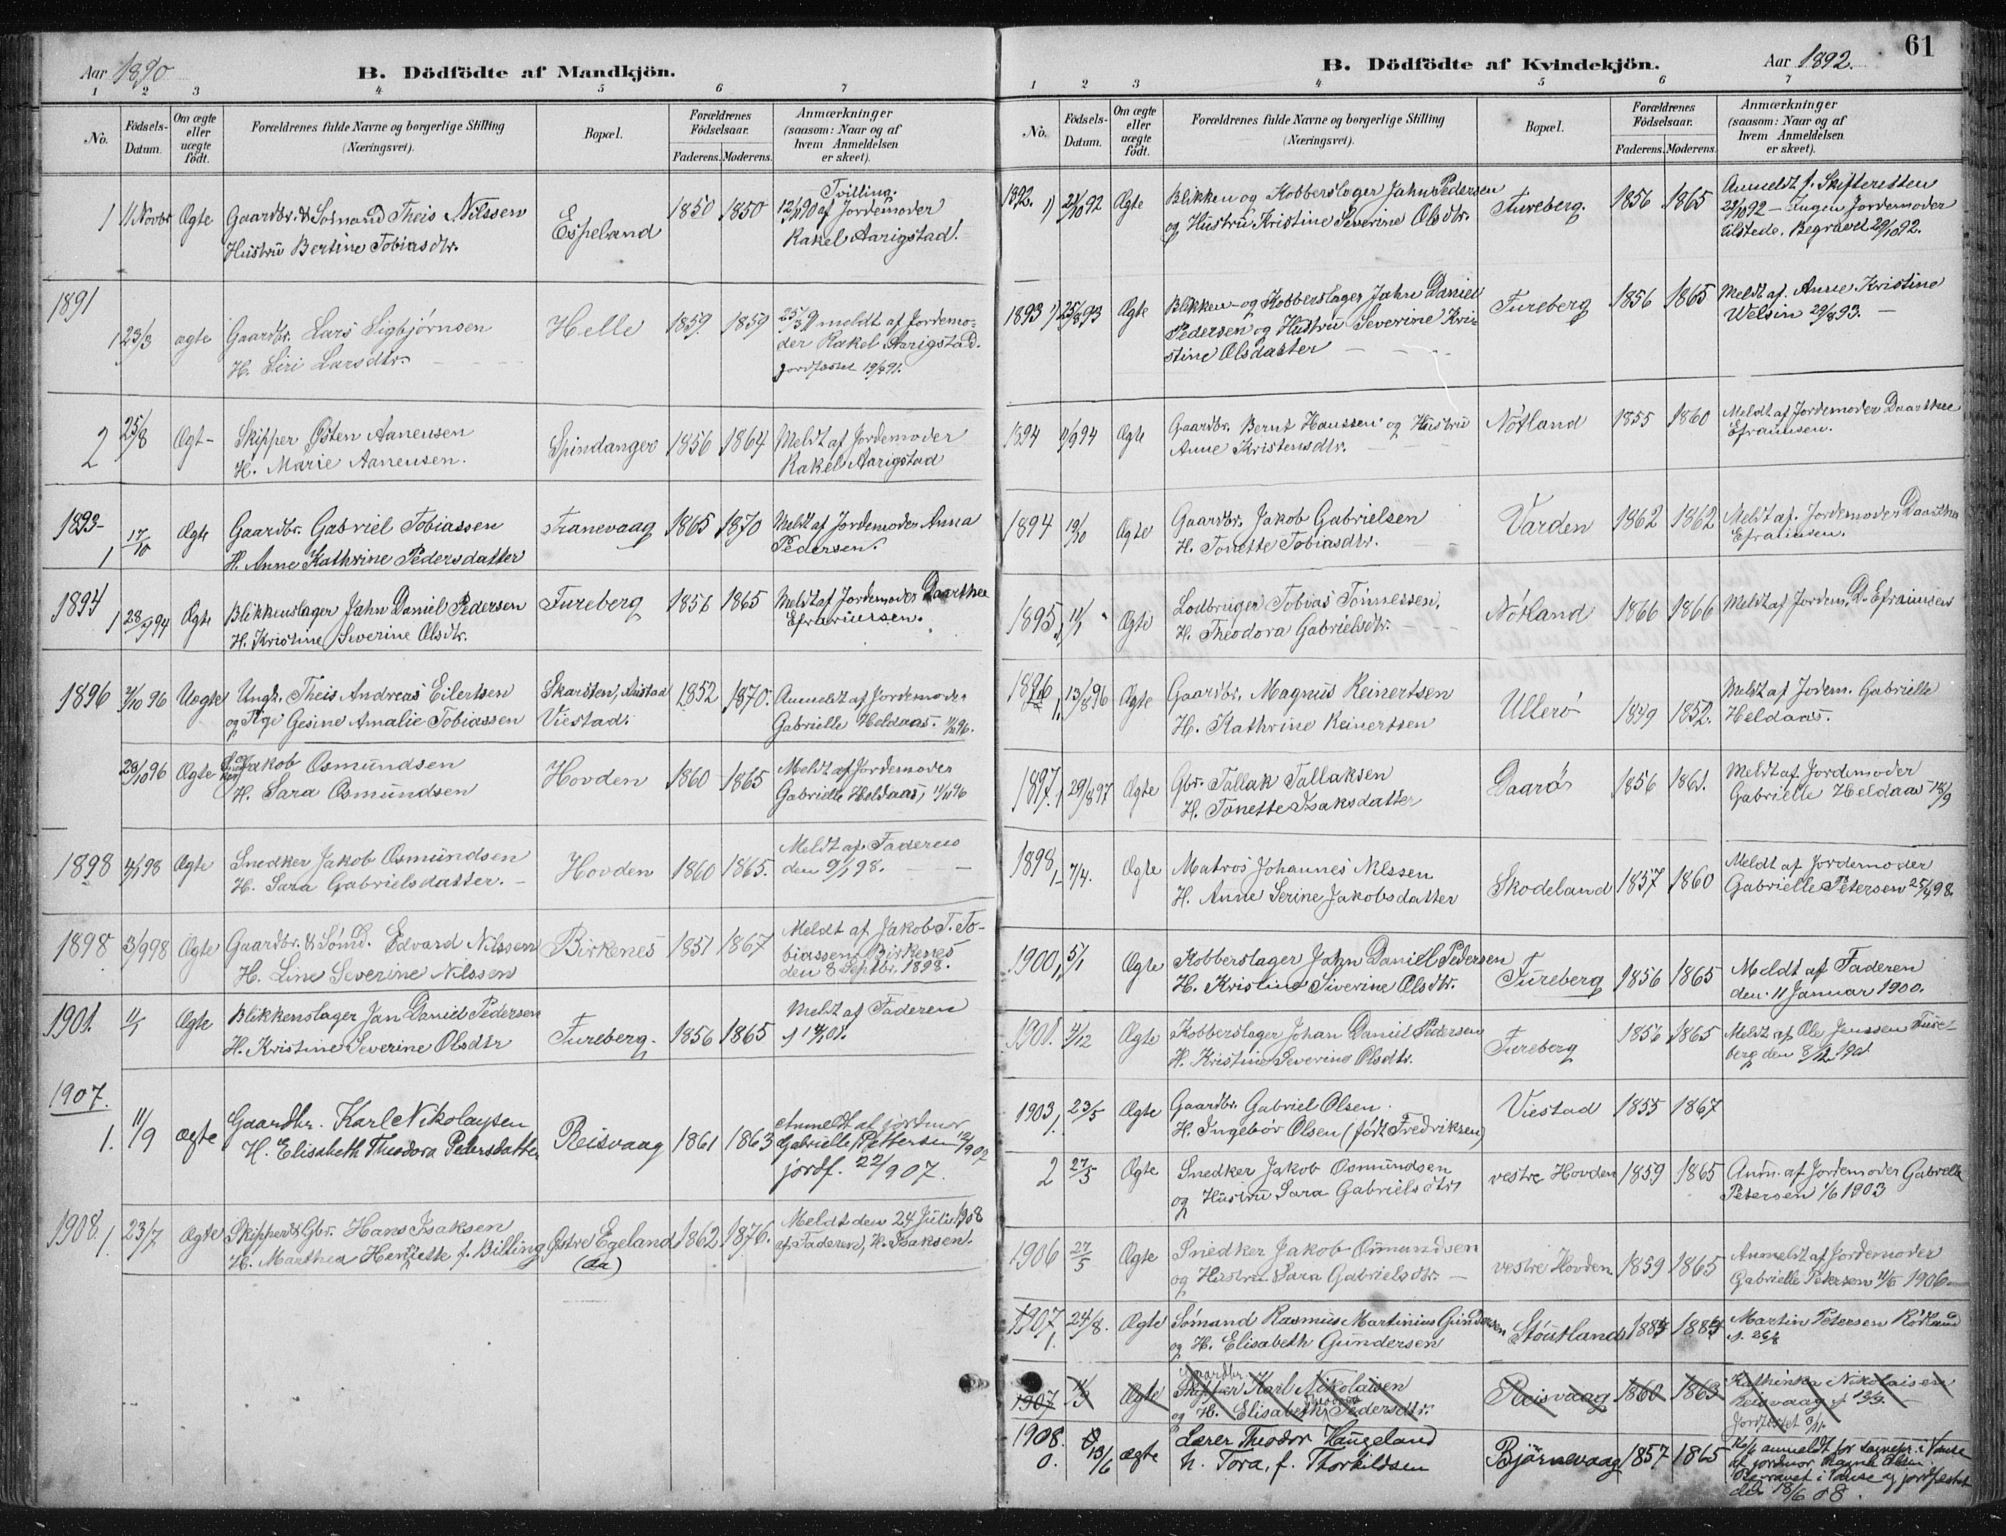 Aar 1890
B. Dödfödte af Mandkjön.
1 2 3 4 5 6 7
No.
Födsels-Datum.
Om ægte eller uægte født.
Forældrenes fulde Navne og borgerlige Stilling
(Næringsvei).
Bopæl.
Forældrenes Födselsaar.
Faderens. Moderens.
Anmærkninger
(saasom: Naar og af
hvem Anmeldelsen
er skeet).
1 11 Novbr Ægte Gaardbr. & Sømand Theis Nilssen
Hustru Bertine Tobiasdtr.
Espeland 1850 1850
Tvilling.
12/11 90 af Jordemoder
Rakel Aarigstad.
1891
1 23/3 ægte Gaardbr. Lars Sigbjørnsen
H. Siri Larsdtr.
Helle 1859 1859
25/3 91 meldt af Jordemo-
der Rakel Aarigstad.
Jordfæstet 19/4 91.
2 25/8 Ægt- Skipper Østen Aanensen
H. Marie Aanensen.
Spindanger 1856 1864
Meldt af Jordemoder
Rakel Aarigstad
1893-
1 17/10 Ægte Gaardbr. Gabriel Tobiassen
H. Anne Kathrine Pedersdatter
Tranevaag 1865 1870
Meldt af Jordemoder Anna
Pedersen.
1894
1 Ægte Blikkenslager Jahn Daniel Pedersen
H. Kristine Severine Olsdtr.
Fureberg 1856 1865
Meldt af Jordemoder Daarthea
Efraimsen.
1896 Uægte Ungk. Theis Andreas Eilertsen
og Pige Gesine Amalie Tobiassen
Skarsten,
Viestad. 1852 1870.
Anmeldt af Jordemoder
Gabrielle Heldaas.
28/10 96 Ægte Jakob Osmundsen
H. Sara Osmundsen
Hovden 1860 1865
Meldt af Jordemoder
Gabrielle Heldaas,
1898 Ægte Snedker Jakob Osmundsen
H. Sara Gabrielsdatter.
Hovden 1860 1865.
Meldt af Faderen
den 9/1 98.
1898 3/9 98 Ægte Gaardbr. & Sømd. Edvard Nilssen
H. Line Severine Nilssen
Birkenes 1851 1867
Meldt af Jakob T. To-
biassen, Birkenes
den 8 Septbr. 1898.
1901. 11/1 Ægte Blikkenslager Jan Daniel Pedersen
H. Kristine Severine Olsdtr
Fureberg. 1856 1865
Meldt af Faderen
1907.
1. 11/9 ægte Gaardbr. Karl Nikolaysen
H. Elisabeth Theodora Pedersdatter
Reisvaag 1861 1863
Anmeldt af jordmor
Gabrielle Pettersen 12/9 907
jordf. 22/9 07.
1908. 1. 23/7 Ægte Skipper & Gbr. Hans Isaksen
H. Marthea Henriette f. Bilting
Østre Egeland
(da)
1862 1876.
Meldt den 24 Juli 1908
af Faderen, H. Isaksen.
61
B. Dödfödte af Kvindekjön.
Aar 1892.
1 2 3 4 5 6 7
No.
Födsels-Datum.
Om ægte eller uægte født.
Forældrenes fulde Navne og borgerlige Stilling
(Næringsvei).
Bopæl.
Forældrenes Födselsaar.
Faderens. Moderens.
Anmærkninger
(saasom: Naar og af
hvem Anmeldelsen
er skeet).
1892. 1) Ægte Blikken og Kobberslager Jahn Pedersen
og Hustru Kristine Severine Olsdtr.
Fureberg. 1856 1865
Anmeldt f. Skifteretten
- Ingen Jordemoder
tilstede. Begravet 29/10 92.
1893 1) 25/8 93 Ægte Blikken- og Kobberslager Jahn Daniel
Pedersen og Hustru Severine Kri-
stine Olsdatter
Fureberg 1856 1865
Meldt af Anne Kristine
Welsin 29/8 93.
1894 Ægte Gaardbr. Bernt Hanssen og Hustru
Anne Kristensdtr.
Nøtland 1855 1860
Meldt af Jordemoder Daarthea
Efraimsen.
1894 19/10 Ægte Gaardbr. Jakob Gabrielsen
H. Tonette Tobiasdtr.
Varden 1862 1862
Meldt af Jordemoder Daarthea
Efraimsen.
1895 Ægte Lodbruger Tobias Tønnessen,
H. Theodora Gabrielsdtr.
Nøtland 1866 1866
Meldt af Jordem. D. Efraimsen
1896 1. 13/8 96 Ægte Gaardbr. Magnus Reinertsen
H. Kathrine Reinertsen
Ullerø 1849 1852.
Meldt af Jordem. Gabrielle
Heldaas.
1897. 1 29/8 97 Ægte Gbr. Tallak Tallaksen
H. Tonette Isaksdatter
Daarø 1856 1861.
Meldt af Jordemoder
Gabrielle Heldaas 18/9
1898 1 7/4. Ægte Matros Johannes Nilssen
H. Anne Serine Jakobsdatter
Skodeland 1857 1860
Meldt af Jordemoder
Gabrielle Petersen 25/4 98.
1900 1, 5/1 Ægte Kobberslager Jahn Daniel Pedersen
H. Kristine Siverine Olsdtr.
Fureberg 1856 1865
Meldt af Faderen
den 11 Januar 1900.
1901. 4/12 Ægte Kobberslager Johan Daniel Pedersen
H. Kristine Severine Olsdtr.
Fureberg 1856 1865
Meldt af Ole Jenssen Fure-
berg den 8/12 1901
1903 1. 23/5 Ægte Gaardbr. Gabriel Olsen.
H. Ingebør Olsen (født Fredriksen)
Viestad 1855 1867
2 27/5 Ægte Snedker Jakob Osmundsen
og Hustru Sara Gabrielsdtr
vestre Hovden 1859 1865
Anm. af Jordemoder Gabrielle
Petersen 1/6 1903
1906 27/5 Ægte Snedker Jakob Osmundsen
og Hustru Sara Gabrielsdtr.
vestre Hovden 1859 1865
Anmeldt af Jordemoder
Gabrielle Petersen 1906
1907 1. 24/8. Ægte Sømand Rasmus Martinius Gundersen
og H. Elisabeth Gundersen
Støutland
Martin Petersen Rødland
s. 26/8
1907 Ægte Gaardbr
Skipper Karl Nikolaisen
og H. Elisabeth Theodora Pedersdtr.
Reisvaag 1860 1863
Kathinka Nikolaisen
Reisvaag 12/9.
Jordfestet
1908. 0. 13/6 ægte Lærer Theodor Haugeland
h. Tora, f. Thorkildsen
Bjørnevaag 1857 1865
anmeldt for sognepr. i Vanse
af jordmor Ragna Olsen.
Begravet i Vanse og jordfestet
den 18/6 08.